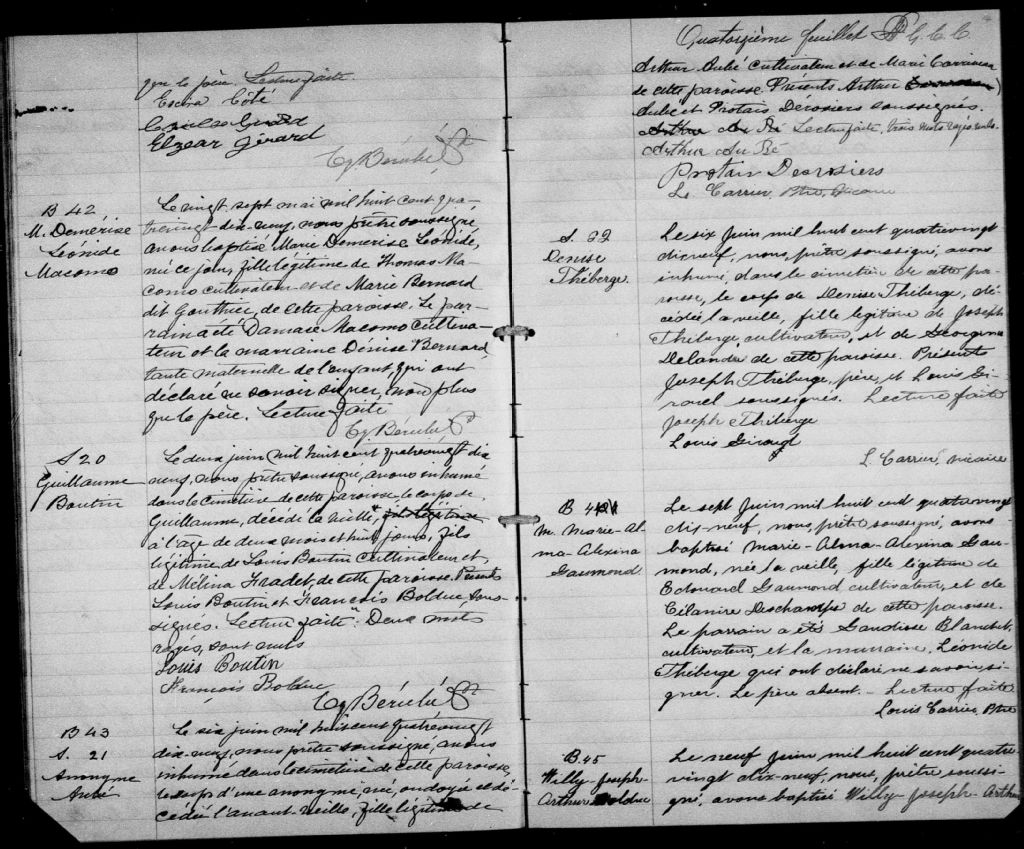 que le père. Lecture faite
Elzear Girard
B 42
M. Demerise
Léonide
Macomo
Le vingt sept mai mil huit cent qua-
trevingt-dix-neuf, nous prêtre soussigné
avons baptisé Marie Demerise Léonide,
née ce jour, fille légitime de Thomas Ma-
como cultivateur et de Marie Bernard
dit Gonthier, de cette paroisse. Le par-
rain a été Damase Macomo cultiva-
teur et la marraine Dénise Bernard,
tante maternelle de l'enfant, qui ont
déclaré ne savoir signer, non plus
que le père. Lecture faite
S 20
Guillaume
Boutin
Le deux juin mil huit cent quatrevingt dix
neuf, nous prêtre soussigné, avons inhumé
dans le cimetière de cette paroisse, le corps de
Guillaume, décédé la veille, fils légitime
à l'age de deux mois et huit jours, fils
légitime de Louis Boutin Cultivateur et
de Mélina Fradet, de cette paroisse. Présents
Louis Boutin et François Bolduc, sous-
signés. Lecture faite. Deux mots
rayés, sont nuls
Louis Boutin
François Bolduc
B 43
S. 21
Anonyme
Aubé
Le six juin mil huit cent quatrevingt
dix-neuf, nous prêtre soussigné, avons
inhumé dans le cimetière de cette paroisse,
le corps d'une anonyme, née, ondoyée et dé-
cédée l'avant-veille, fille légitime de
Quatorzième feuillet
Arthur Aubé cultivateur et de Marie
de cette paroisse. Présents Arthur
Aubé et Protais Derosiers soussignés.
Lecture faite, trois mots rayés nuls.
Arthur Au Bé
Protais Desrosiers
L. Carrier, Ptre, Vicaire
S. 22
Denise
Théberge
Le six Juin mil huit cent quatrevingt
dix neuf, nous, prêtre soussigné, avons
inhumé, dans le cimetière de cette pa-
roisse, le corps de Denise Théberge, dé-
cédée la veille, fille légitime de Joseph
Théberge, cultivateur, et de Georgina
Delandre de cette paroisse. Présents
Joseph Théberge, père, et Louis Gi-
rard soussignés. Lecture faite
Joseph Théberge
Louis Giroux
L. Carrier, vicaire
B 44
M. Marie-Al-
ma-Alexina
Gaumond
Le sept Juin mil huit cent quatrevingt
dix-neuf, nous, prêtre soussigné, avons
baptisé Marie-Alma-Alexina Gau-
mond, née la veille, fille légitime de
Edouard Gaumond cultivateur, et de
Deschamps de cette paroisse.
Le parrain a été Gaudiose Blanchet,
cultivateur, et la marraine, Léonide
Théberge qui ont déclaré ne savoir si-
gner. Le père absent. - Lecture faite
Louis Carrier, Ptre
B. 45
Willy-Joseph-
Arthur Bolduc
Le neuf Juin mil huit cent quatre-
vingt dix-neuf, nous, prêtre soussi-
gné, avons baptisé Willy-Joseph-Arthur